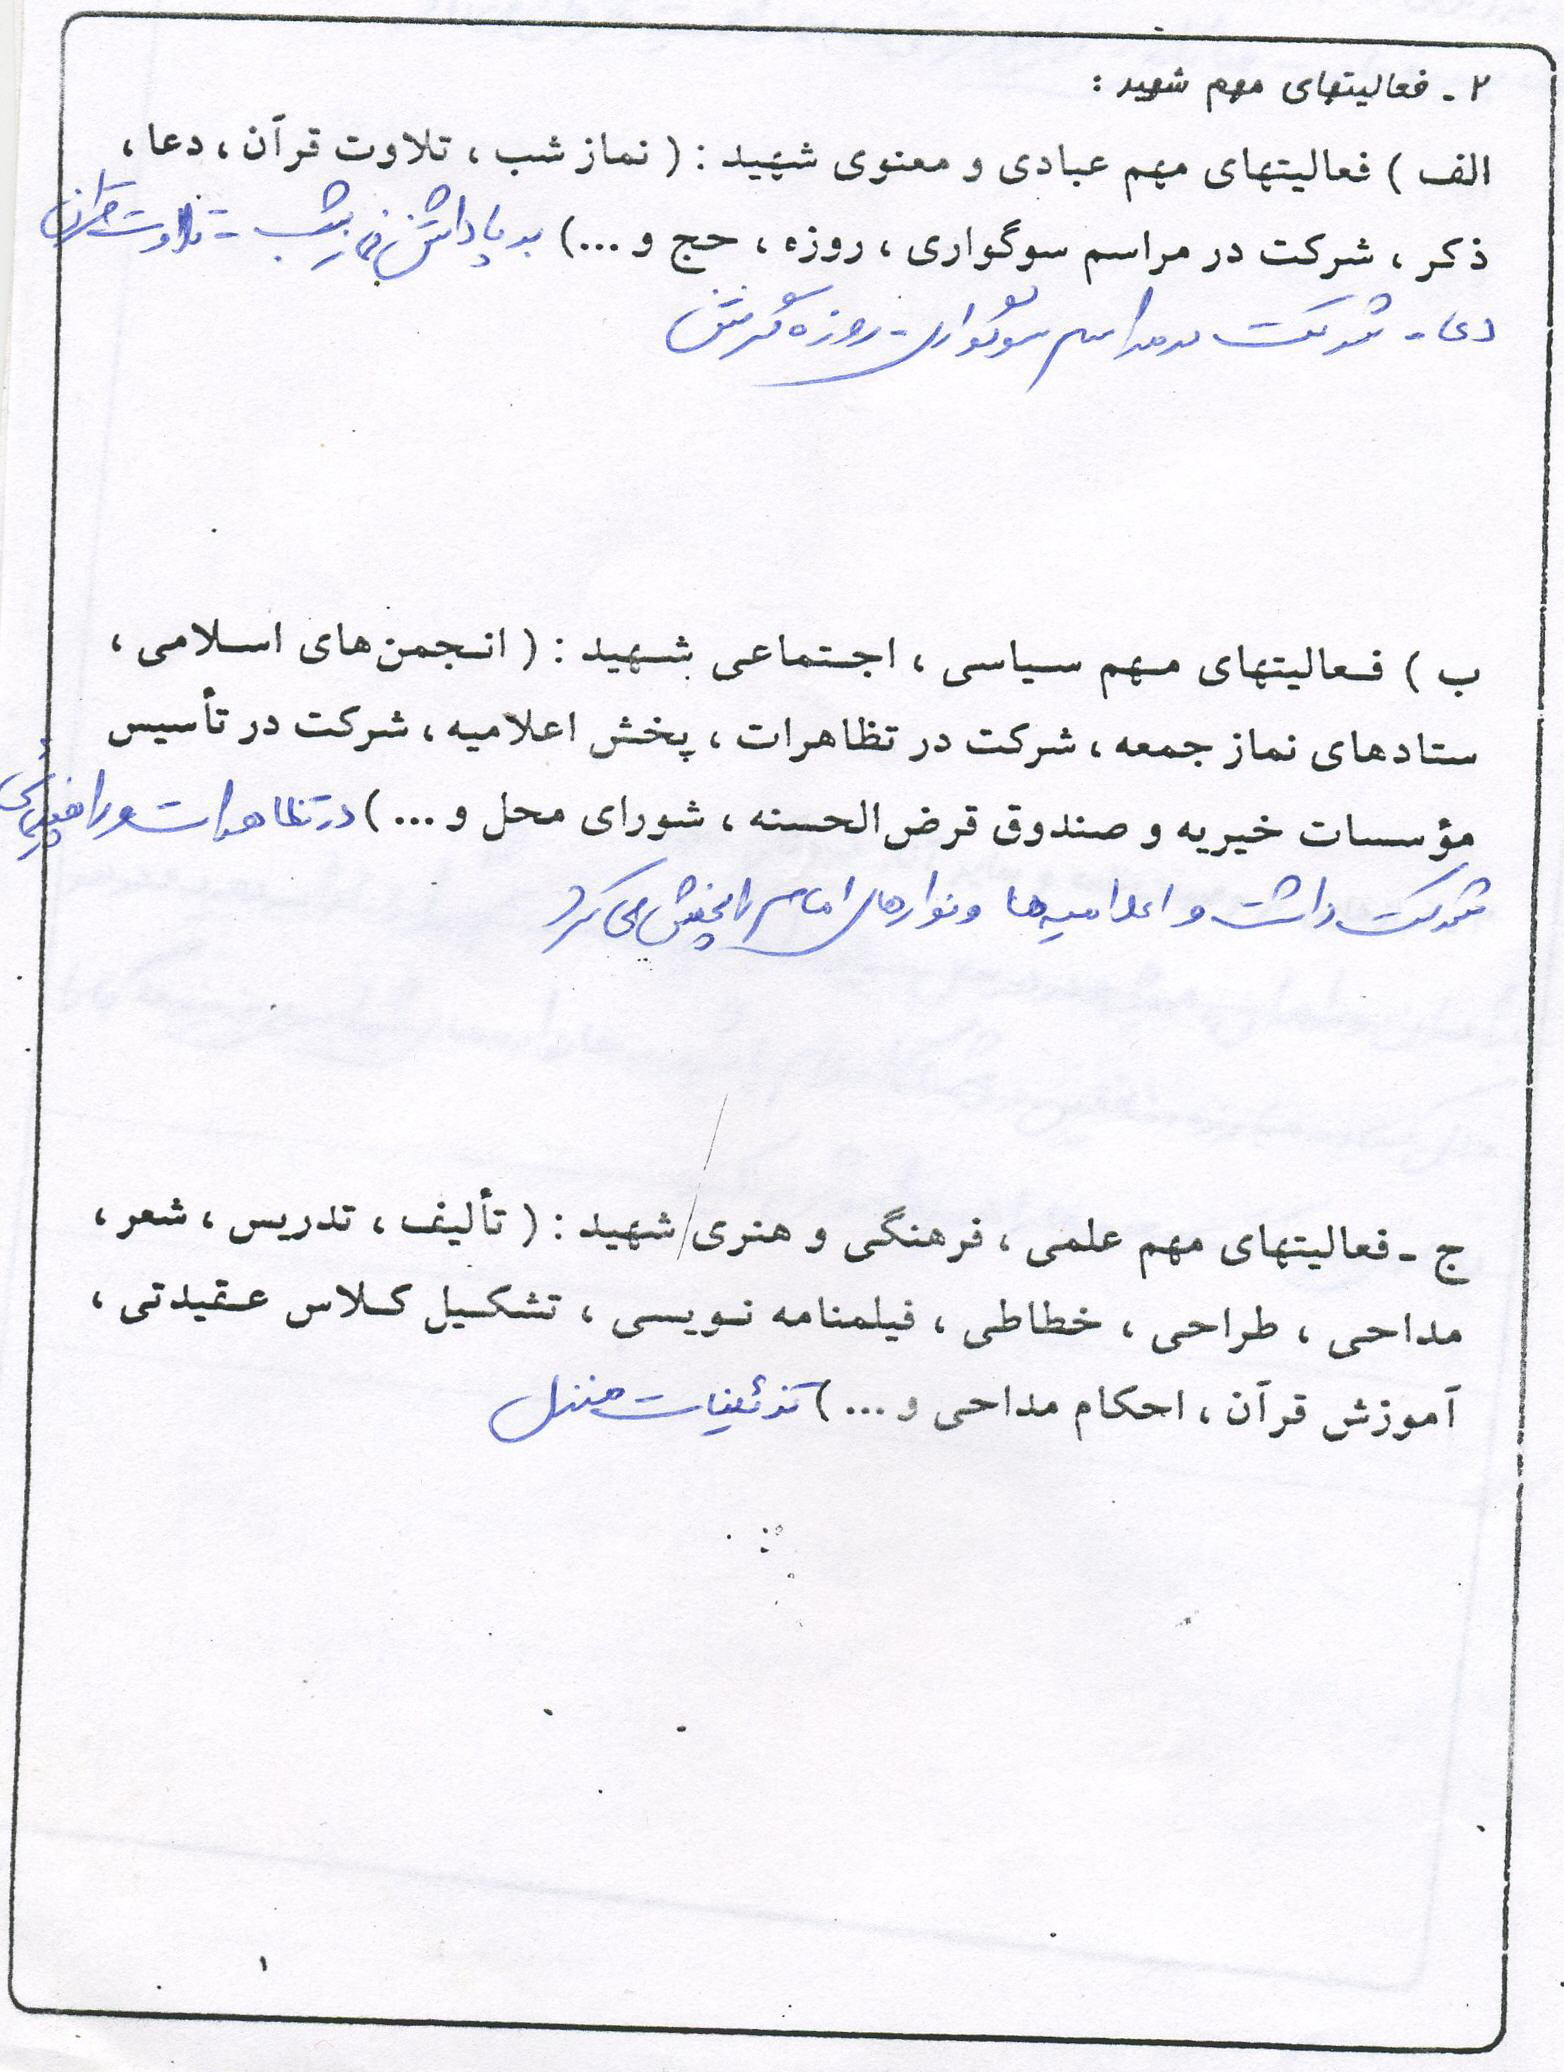 ۲ - فعالیتهای مهم شهید :
الف ) فعالیتهای مهم عبادی و معنوی شهید : ( نماز شب ، تلاوت قرآن ، دعا ،
ذکر ، شرکت در مراسم سوگواری ، روزه ، حج و ...) بپاداشتن نماز شب - تلاوت قرآن
دعا - شرکت در مراسم سوگواری - روزه گرفتن
ب ) فعالیتهای مهم سیاسی ، اجتماعی شهید : ( انجمن‌های اسلامی ،
ستادهای نماز جمعه ، شرکت در تظاهرات ، پخش اعلامیه ، شرکت در تأسیس
مؤسسات خیریه و صندوق قرض‌الحسنه ، شورای محل و ... ) در تظاهرات و راهپیمائی
شرکت داشت و اعلامیه‌ها و نوارهای امام را پخش می‌کرد
ج - فعالیتهای مهم علمی ، فرهنگی و هنری شهید : ( تألیف ، تدریس ، شعر ،
مداحی ، طراحی ، خطاطی ، فیلمنامه نویسی ، تشکیل کلاس عقیدتی ،
آموزش قرآن ، احکام مداحی و ... ) تزئینات منزل
۱